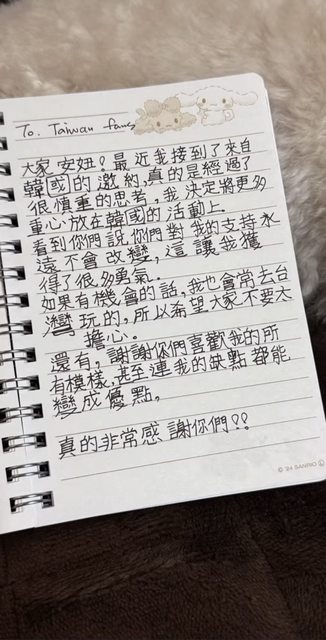 To. Taiwan fans
大家安妞！最近我接到了來自
韓國的邀約,真的是經過了
很慎重的思考,我決定將更多
重心放在韓國的活動上.
看到你們說你們對我的支持永
遠不會改變,這讓我獲
得了很多勇氣.
如果有機會的話,我也會常去台
灣玩的,所以希望大家不要太
擔心.
還有,謝謝你們喜歡我的所
有模樣,甚至連我的缺點都能
變成優點,
真的非常感謝你們!!
© '24 SANRIO